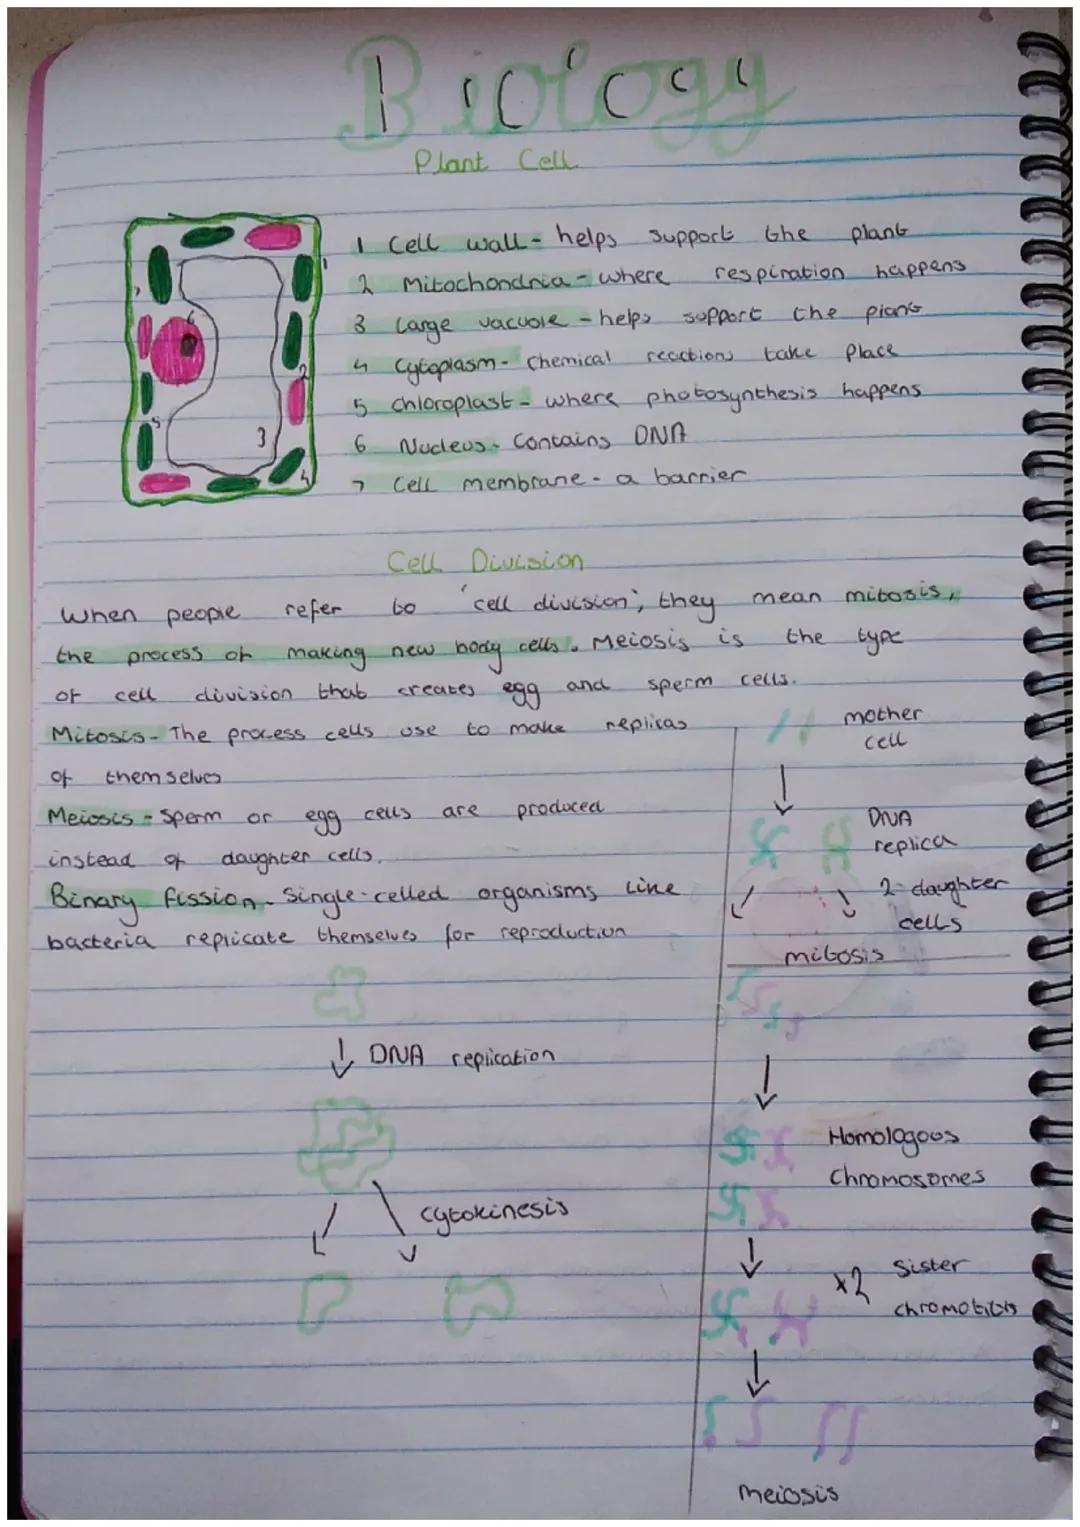 Biology
Plant Cell
1 Cell wall - helps support the plant
2 Mitochondria - where respiration happens
3 Large vacuole - helps support the plant
4 Cytoplasm - Chemical reactions take place
5 Chloroplast - where photosynthesis happens
6 Nucleus - Contains DNA
7 Cell membrane - a barrier
1
7
6
2
5
3
4
Cell Division
When people refer to 'cell division', they mean mitosis,
the process of making new body cells. Meiosis is the type
of cell division that creates egg and sperm cells.
Mitosis - The process cells use to make replicas
of themselves
Meiosis - Sperm or egg cells are produced
instead of daughter cells.
Binary fission - Single-celled organisms like
bacteria replicate themselves for reproduction
DNA replication
cytokinesis
mother
cell
DNA
replica
2 daughter
cells
mitosis
Homologous
Chromosomes
x2 Sister
chromotids
meiosis